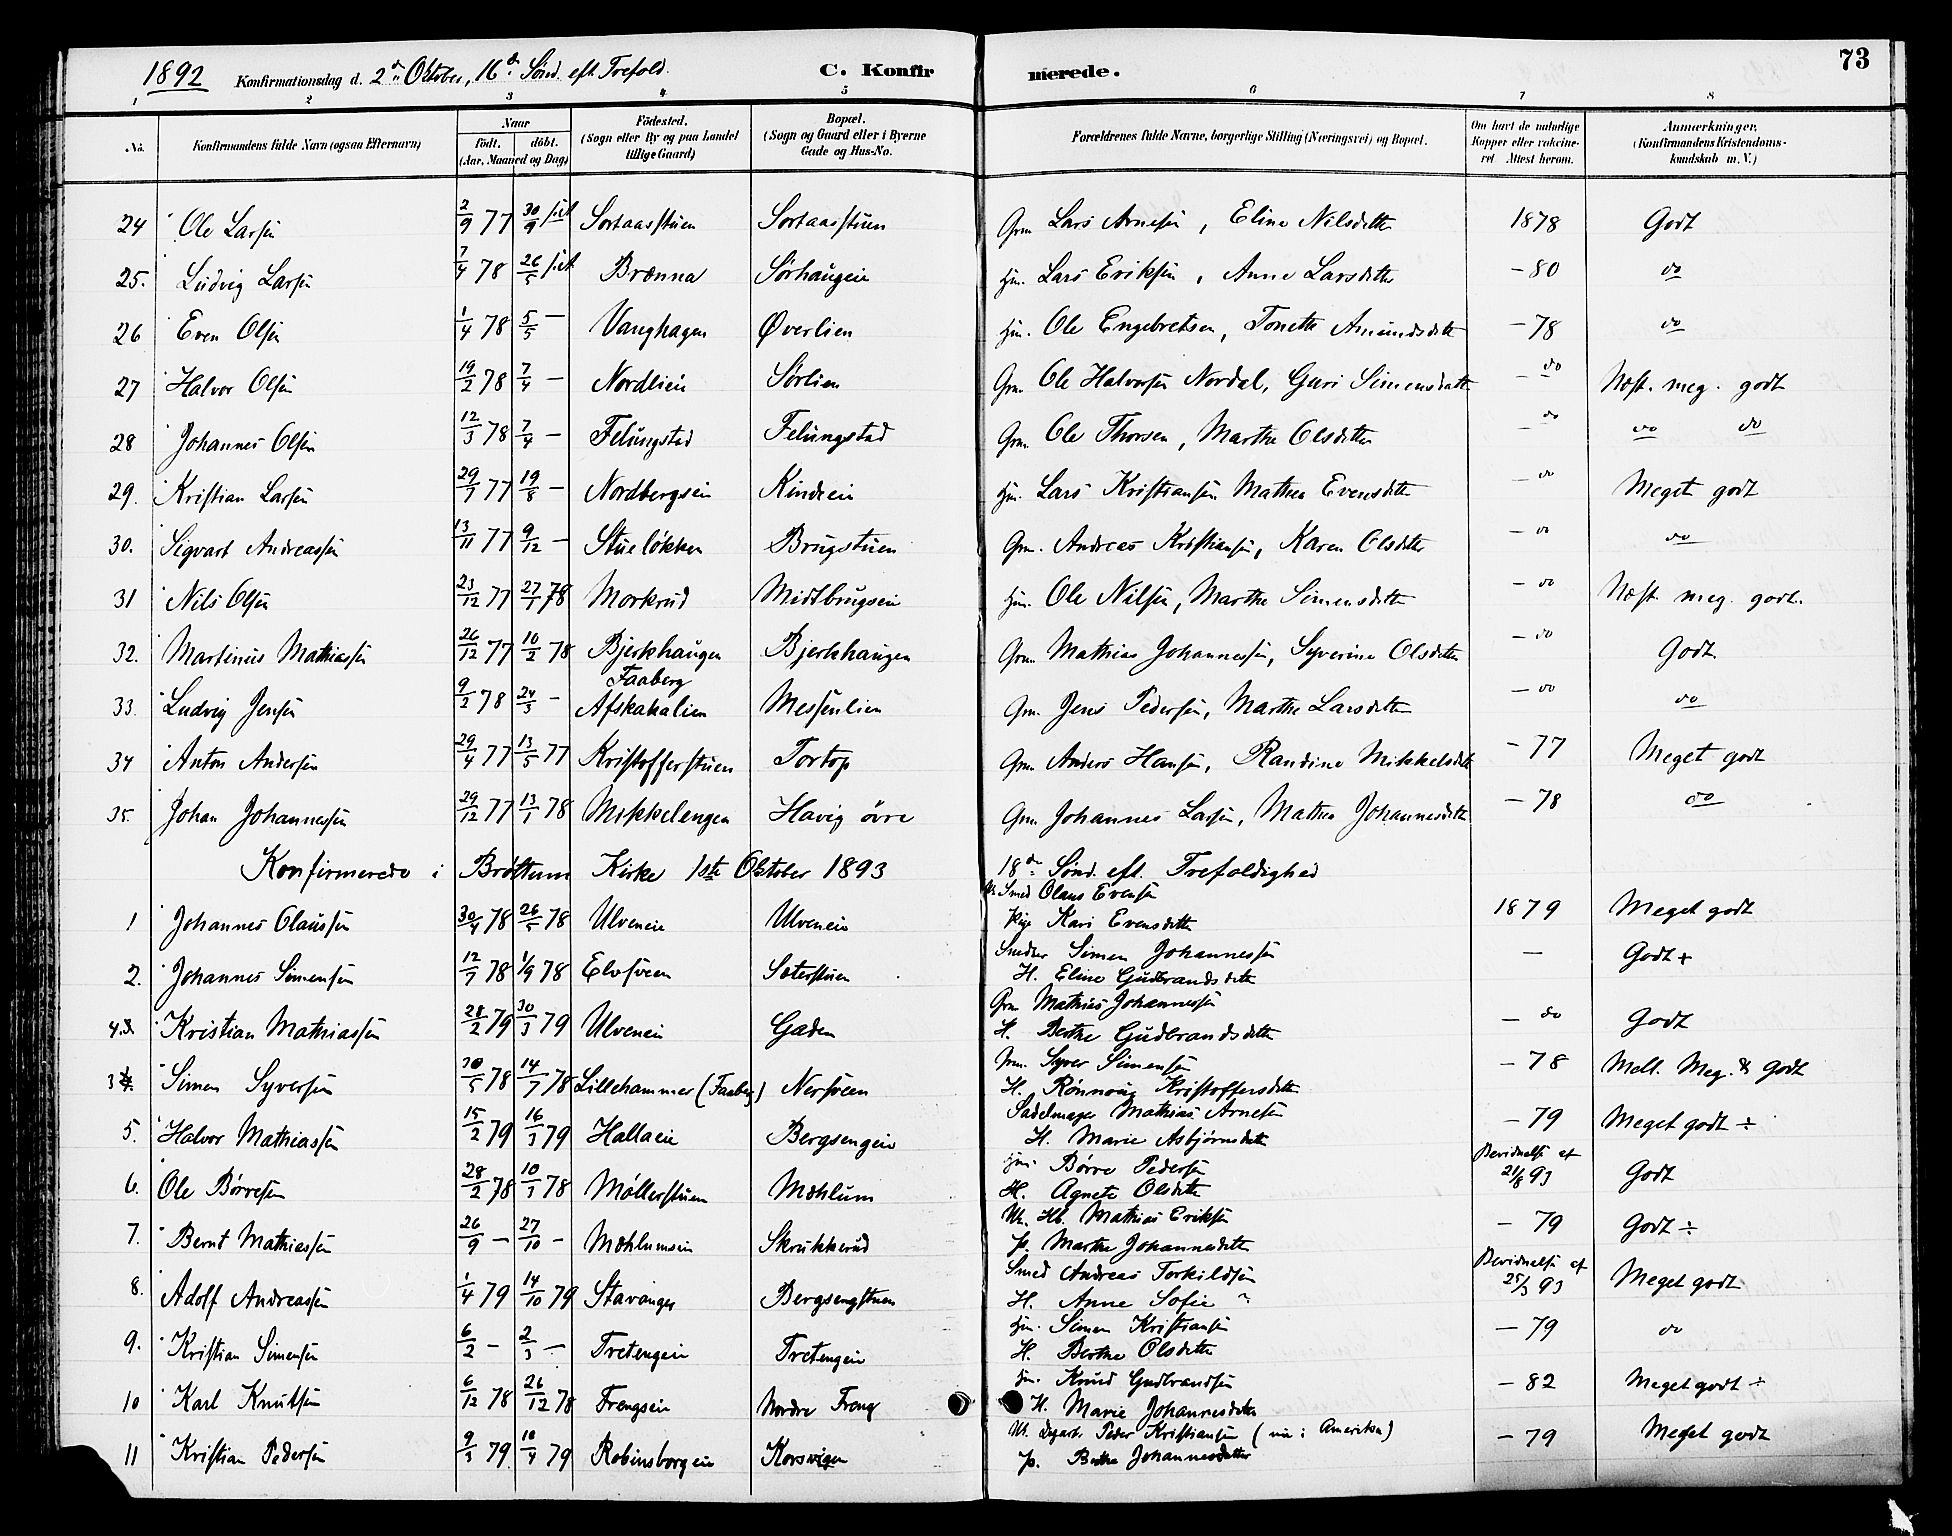 73
1892 Konfirmationsdag d. 2den Oktober, 16de Sønd. eft. Trefold. C. Konfirmerede.
1 2 3 4 5 6 7 8
No. Konfirmandens fulde Navn (ogsaa Efternavn) Naar födt. döbt. (Aar, Maaned og Dag) Födested. (Sogn eller By og paa Landet tillige Gaard) Bopæl. (Sogn og Gaard eller i Byerne Gade og Hus-No. Forældrenes fulde Navne, borgerlige Stilling (Næringsvei) og Bopæl. Om havt de naturlige Kopper eller vakcineret Attest herom. Anmærkninger. (Konfirmandens Kristendomskundskab m. V.)
24 Ole Larsen 2/9 77 30/9 Sortaasstuen Sortaasstuen Grm Lars Arnesen, Eline Nilsdatter 1878 Godt
25. Ludvig Larsen 7/4 78 26/5 Brænna Sørhaugen Hjm. Lars Eriksen, Anne Larsdatter - 80 do
26 Even Olsen 1/4 78 5/5 - Vanghagen Øverlien Hjm. Ole Engebretsen, Tonette Amundsdatter - 78 do
27 Halvor Olsen 19/2 78 7/4 - Nordlien Sørlien Grm. Ole Halvorsen Nordal, Guri Simensdatter - do Næst. meg. godt
28 Johannes Olsen 12/3 78 7/4 - Felungstad Felungstad Grm. Ole Thorsen, Marthe Olsdatter - do do do
29. Kristian Larsen 29/7 77 19/8 - Nordbergseie Kindseie Hjm. Lars Kristiansen Mathea Evensdatter - do Meget godt
30. Sigvart Andreassen 13/11 77 9/12 - Stueløkken Brugstuen Grm. Andreas Kristiansen, Karen Olsdatter - do do
31 Nils Olsen 23/12 77 27/1 78 Morkrud Midtbrugseie Hjm. Ole Nilsen, Marthe Simensdatter - do Næst. meg. godt.
32. Martinus Mathiassen 26/12 77 10/2 78 Bjerkhaugen Bjerkhaugen Grm. Mathias Johannessen, Syverine Olsdatter - do Godt.
33. Ludvig Jensen 9/2 78 24/3 - Faaberg Afskakalien Messenlien Grm. Jens Pedersen, Marthe Larsdatter - do do
34 Anton Andersen 29/4 77 13/5 77 Kristofferstuen Tortop Grm Anders Hansen, Randine Mikkelsdtr - 77 Meget godt
35. Johan Johannessen 29/12 77 13/1 78 Mikkelengen Havig övre Grm Johannes Larsen, Mathea Johannesdatter - 78 do
Konfirmerede i Brøttum Kirke 1ste Oktober 1893 18de Sønd. eft. Trefoldighed
1 Johannes Olaussen 30/4 78 26/5 78 Ulveneie Ulveneie Smed Olaus Evensen Pige Kari Evensdatter 1879 Meget godt
2. Johannes Simensen 12/7 78 1/9 78 Elvsveen Sæterstuen Snedker Simen Johannessen H. Eline Gudbrandsdatter - Godt +
4. Kristian Mathiassen 28/2 79 30/3 79 Ulveneie Gaden Grm Mathias Johannessen H. Berthe Gudbrandsdatter - do Godt
3 Simen Syversen 30/5 78 14/7 78 Lillehammer (Faaberg) Nersveen Syver Simensen H. Rönnoug Kristoffersdatter - 78 Mell. Meg. & godt
5. Halvor Mathiassen 15/2 79 16/3 79 Hallaeie Bergsengeie Sadelmager Mathias Arnesen H. Marie Asbjørnsdatter - 79 Meget godt ÷
6. Ole Børresen 28/2 78 10/3 78 Møllerstuen Mæhlum Hjm. Børre Pedersen H. Agnete Olsdatter Bevidnelse af 21/8 93 Godt
7. Bernt Mathiassen 26/9 - 27/10 - Mæhlumseie Skrukkerud Mathias Eriksen P. Marthe Johannesdatter - 79 Godt ÷
8. Adolf Andreassen 1/4 79 14/10 79 Stavanger Bergsengstuen Smed Andreas Torkildsen H. Anne Sofie Bevidnelse af 25/3 93 Meget godt
9. Kristian Simensen 6/2 - 2/3 - Tretengeie Tretengeie Hjm. Simen Kristiansen H. Berthe Olsdatter - 79 do
10 Karl Knutsen 6/12 78 26/12 78 Frengseie Nordre Freng Hjm. Knud Gudbrandsen H. Marie Johannesdatter - 82 Meget godt ÷
11 Kristian Pedersen 9/3 79. 79 Robinsborgeie Korsvigen Peder Kristiansen (nu i Amerika) P. Berthe Johannesdatter - 79 Meget godt